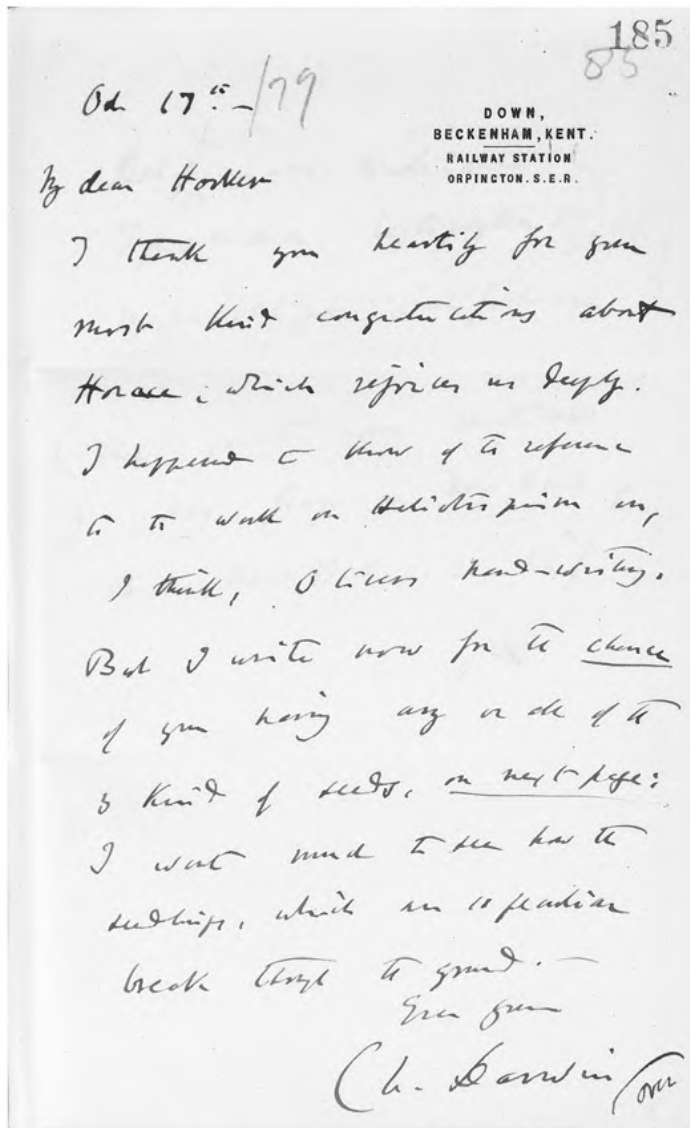 185
85
Oct 17th —/79
DOWN,
BECKENHAM, KENT.
RAILWAY STATION
ORPINGTON. S.E.R.
My dear Hooker
I thank you heartily for your
most kind congratulations about
Horace; which rejoices us deeply.
I happened to know of the reference
to the work on Heliotropism in,
I think, Olivers hand-writing.
But I write now for the chance
of your having any or all of the
3 kind of seeds, on next page:
I want much to see how the
seedlings, which are so peculiar
break through the ground. —
Ever yours
Ch. Darwin
(over